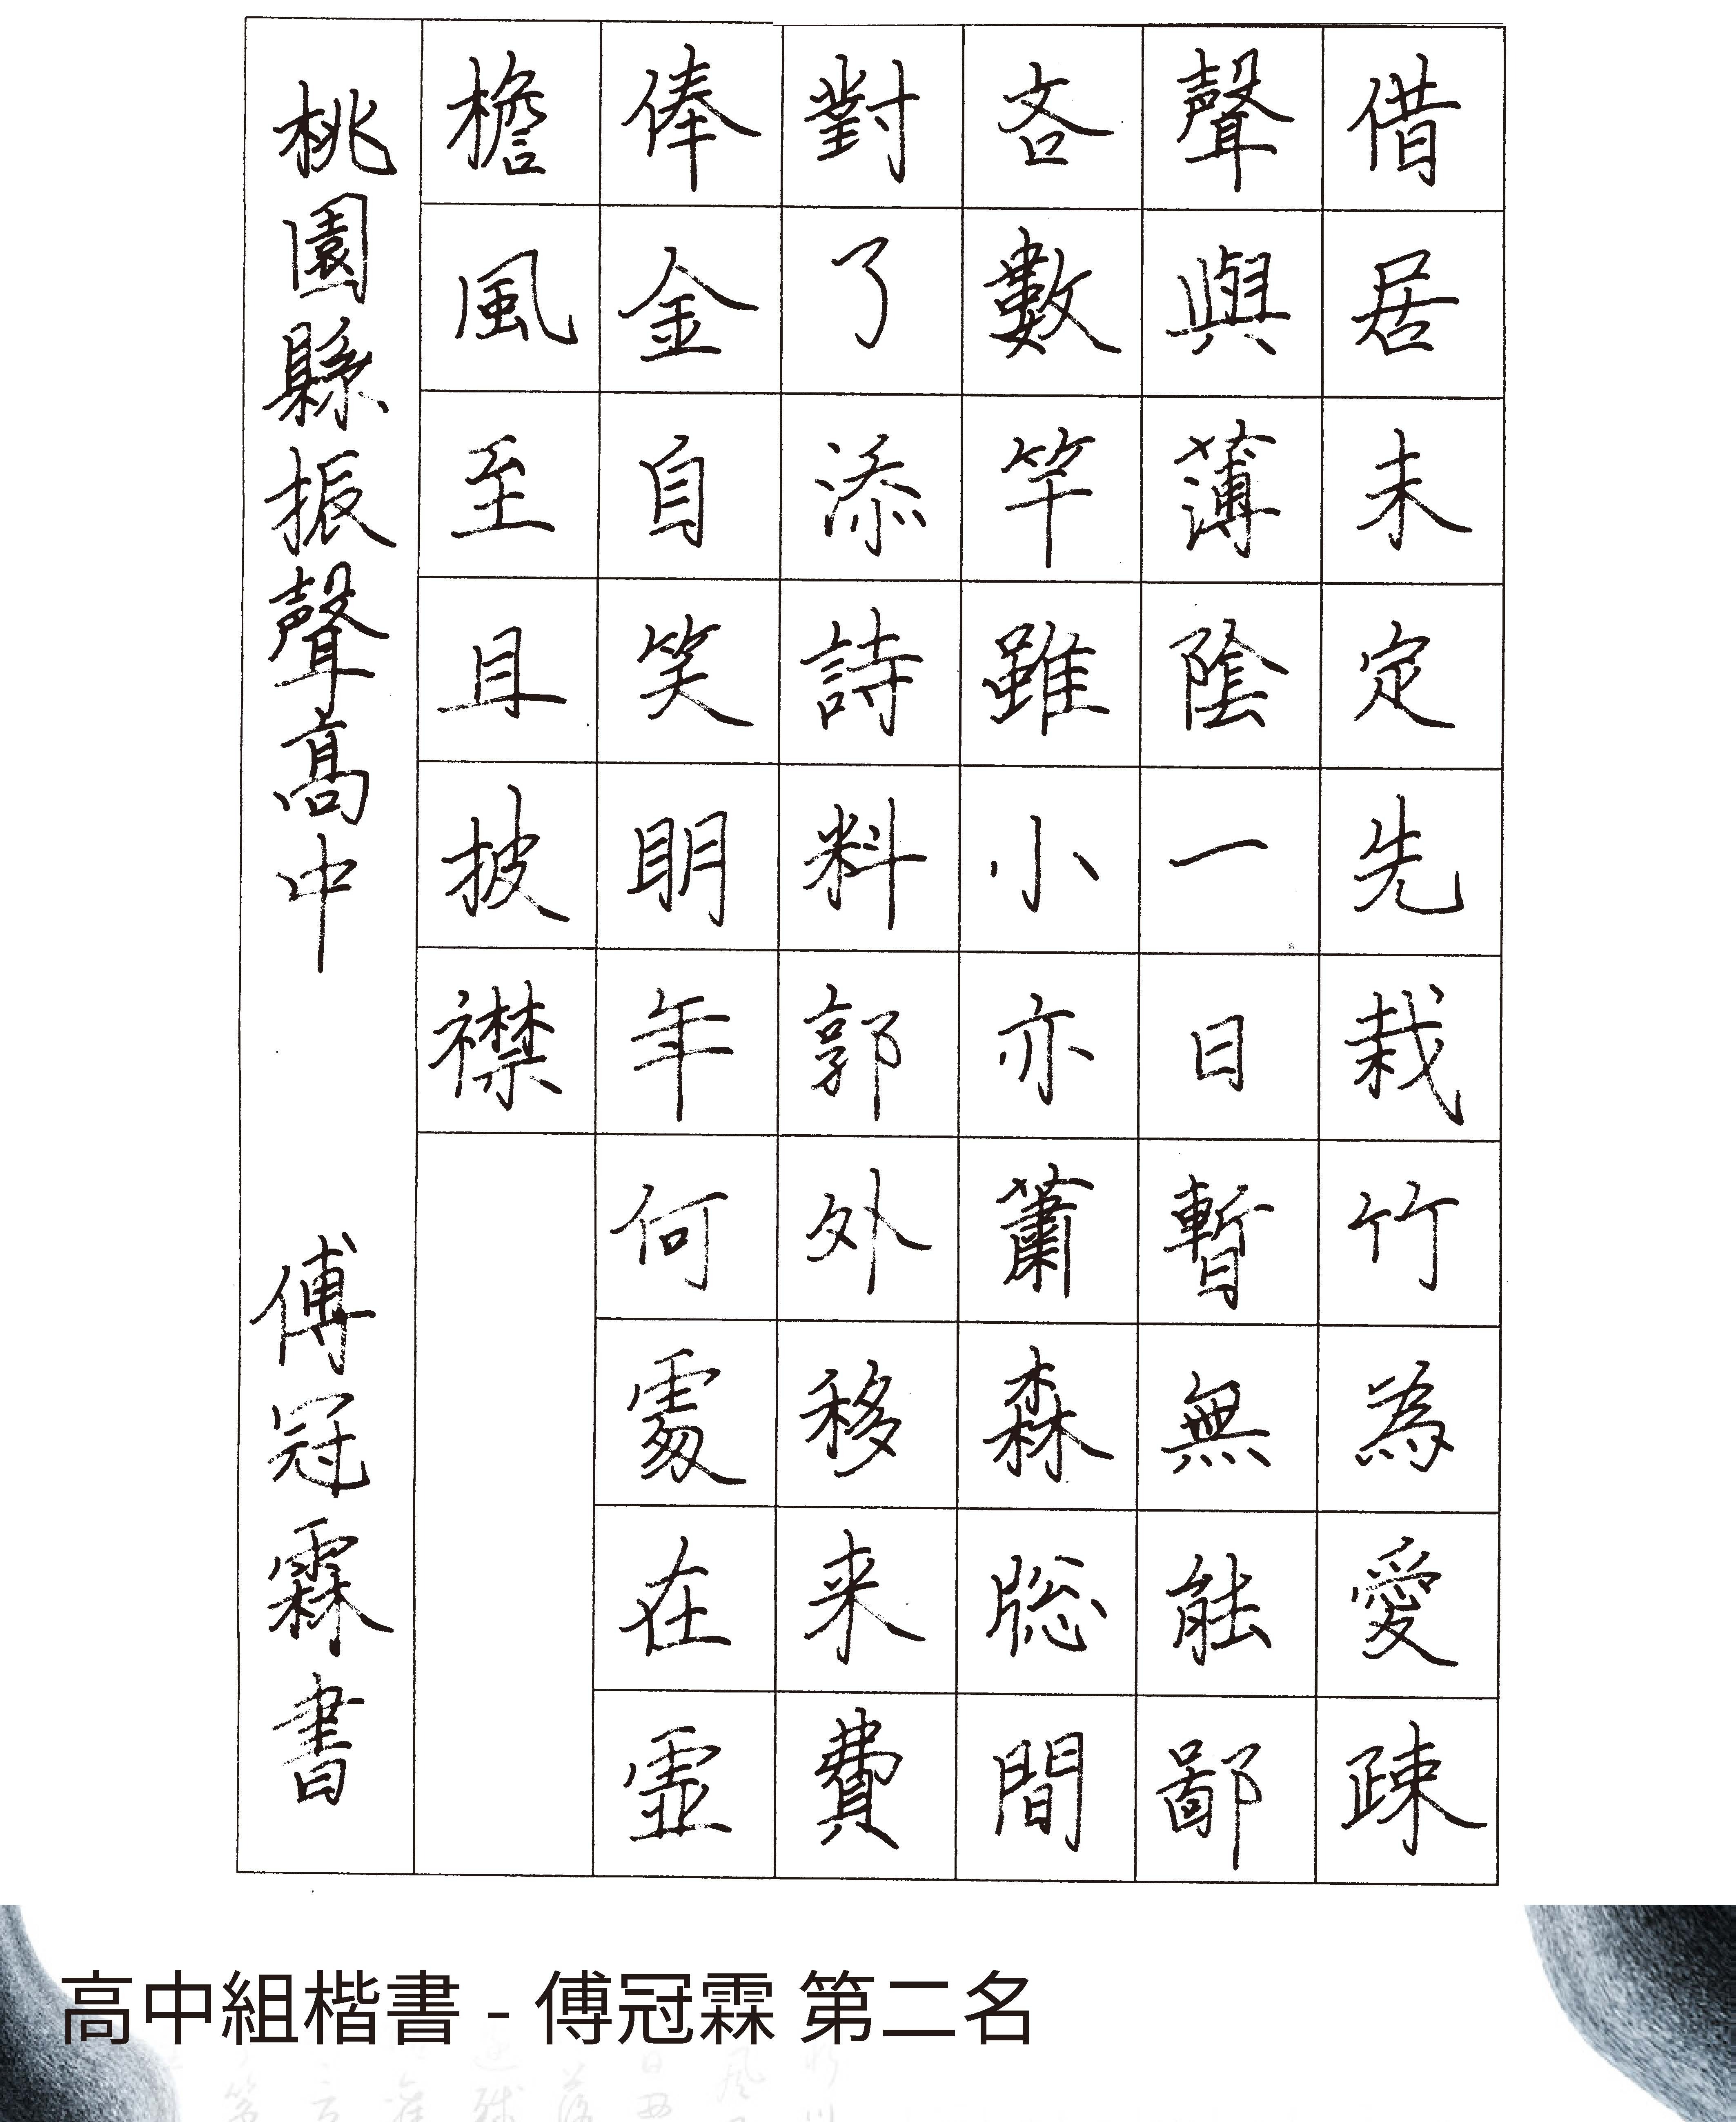 借居未定先栽竹為愛疎
聲與薄陰一日暫無能鄙
吝數竿雖小亦蕭森窓間
對了添詩料郭外移来費
俸金自笑明年何處在虛
檐風至且披襟
桃園縣振聲高中 傅冠霖書
高中組楷書 - 傅冠霖 第二名